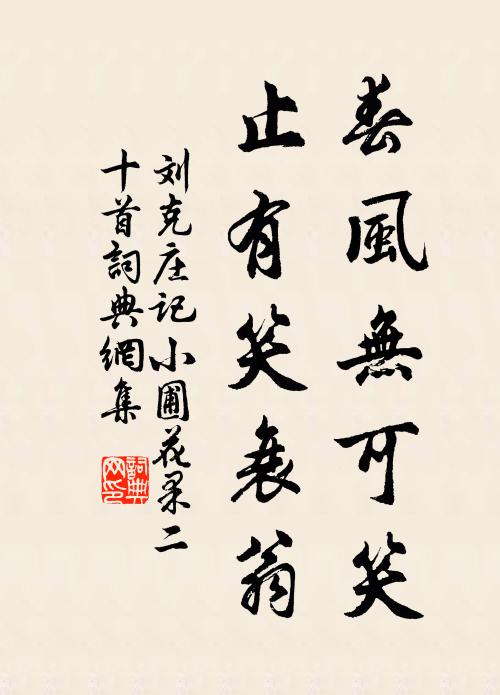 春風無可笑
止有笑衰翁
刘克庄记小圃花果二
十首詞典網集
詞典
网印